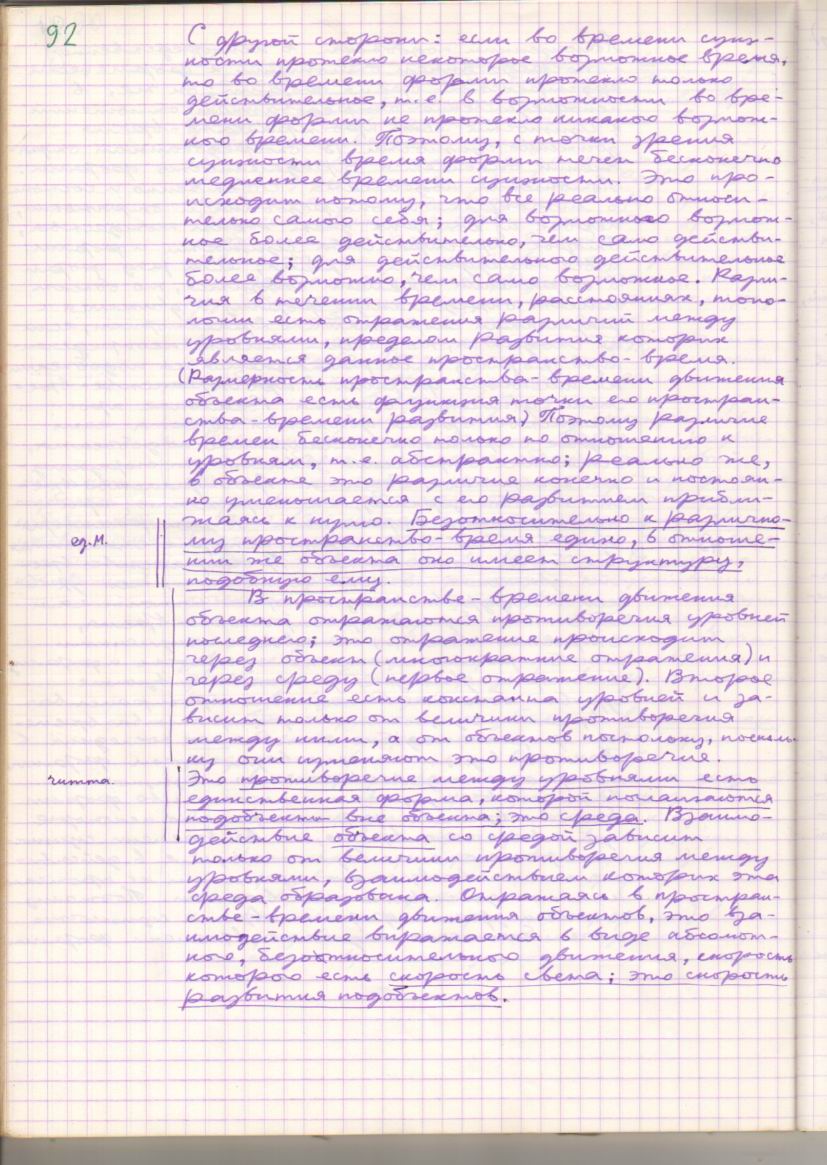 92
С другой стороны: если во времени сущ-
ности протекло некоторое возможное время,
то во времени формы протекло только
действительное, т.е. в возможности во вре-
мени формы не протекло никакого возмож-
ного времени. Поэтому, с точки зрения
сущности время формы течет бесконечно
медленнее времени сущности. Это про-
исходит потому, что все реально относи-
тельно самого себя; для возможного возмож-
ное более действительно, чем само действи-
тельное; для действительного действительное
более возможно, чем само возможное. Разли-
чия в течении времени, расстояниях, топо-
логии есть отражения различий между
уровнями, пределом развития которых
является данное пространство-время.
(Размерность пространства-времени движения
объекта есть функция точки его простран-
ства-времени развития) Поэтому различие
времен бесконечно только по отношению к
уровням, т.е. абстрактно; реально же,
в объекте это различие конечно и постоян-
но уменьшается с его развитием прибли-
жаясь к нулю. Безотносительно к различно-
му пространство-время едино, в отноше-
нии же объекта оно имеет структуру,
подобную ему.
ед.м.
В пространстве-времени движения
объекта отражаются противоречия уровней
последнего; это отражение происходит
через объект (многократные отражения) и
через среду (первое отражение). Второе
отношение есть константа уровней и за-
висит только от величины противоречия
между ними, а от объектов постольку, посколь-
ку они изменяют это противоречие.
читта.
Это противоречие между уровнями есть
единственная форма, которой полагаются
подобъекты вне объекта; это среда. Взаимо-
действие объекта со средой зависит
только от величины противоречия между
уровнями, взаимодействием которых эта
среда образована. Отражаясь в простран-
стве-времени движения объектов, это вза-
имодействие выражается в виде абсолют-
ного, безотносительного движения, скорость
которого есть скорость света; это скорость
развития подобъектов.